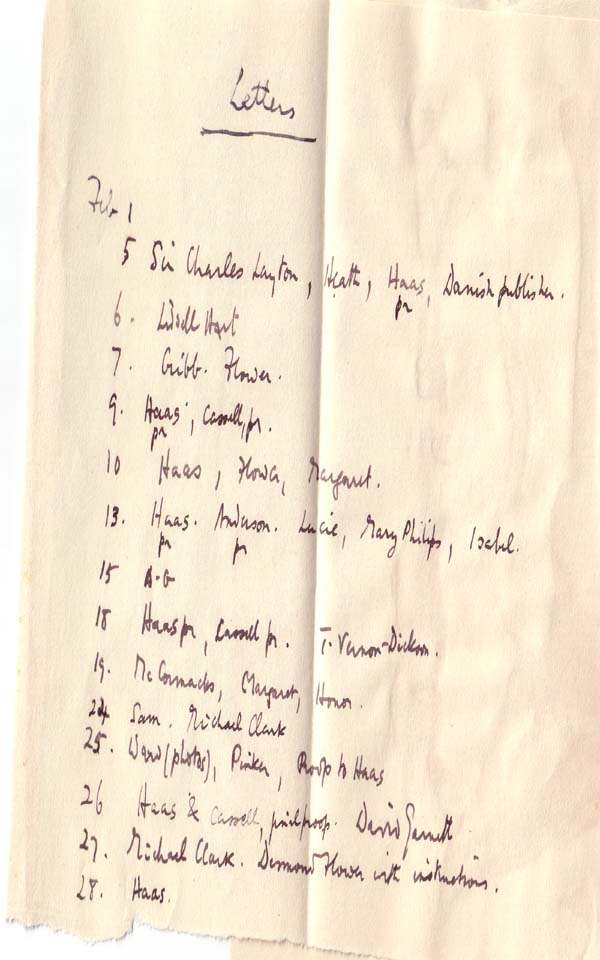 Letters
Feb 1
5 Sir Charles Layton, Heath, Haas, Danish publisher.
pr
6. Liddell Hart
7. Gibb. Flower.
9. Haas, Cassell, pr.
pr
10 Haas, Flower, Margaret.
13. Haas. Anderson. Lucie, Mary Philips, Isabel.
pr pr
15 A-G
18 Haas pr, Cassell pr. T. Vernon-Dickson.
19. McCormacks, Margaret, Honor.
24 Sam. Michael Clark
25. Ward (photos), Pinker, Proofs to Haas
26 Haas & Cassell, proofs. David Garnett
27. Michael Clark. Desmond Flower with instructions.
28. Haas.